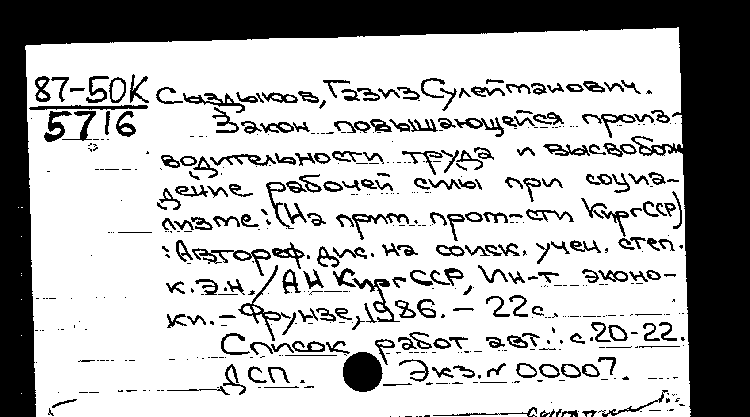 87-50К Сыздыков, Газиз Сулейманович.
5716 Закон повышающейся произ-
водительности труда и высвобож
дение рабочей силы при социа-
лизме: (На прим. пром-сти КиргССР)
: Автореф. дис. на соиск. учен. степ.
к.э.н. / АН КиргССР, Ин-т эконо-
ки. - Фрунзе, 1986. - 22с.
Список работ авт.: с.20-22.
ДСП. Экз.N 00007.